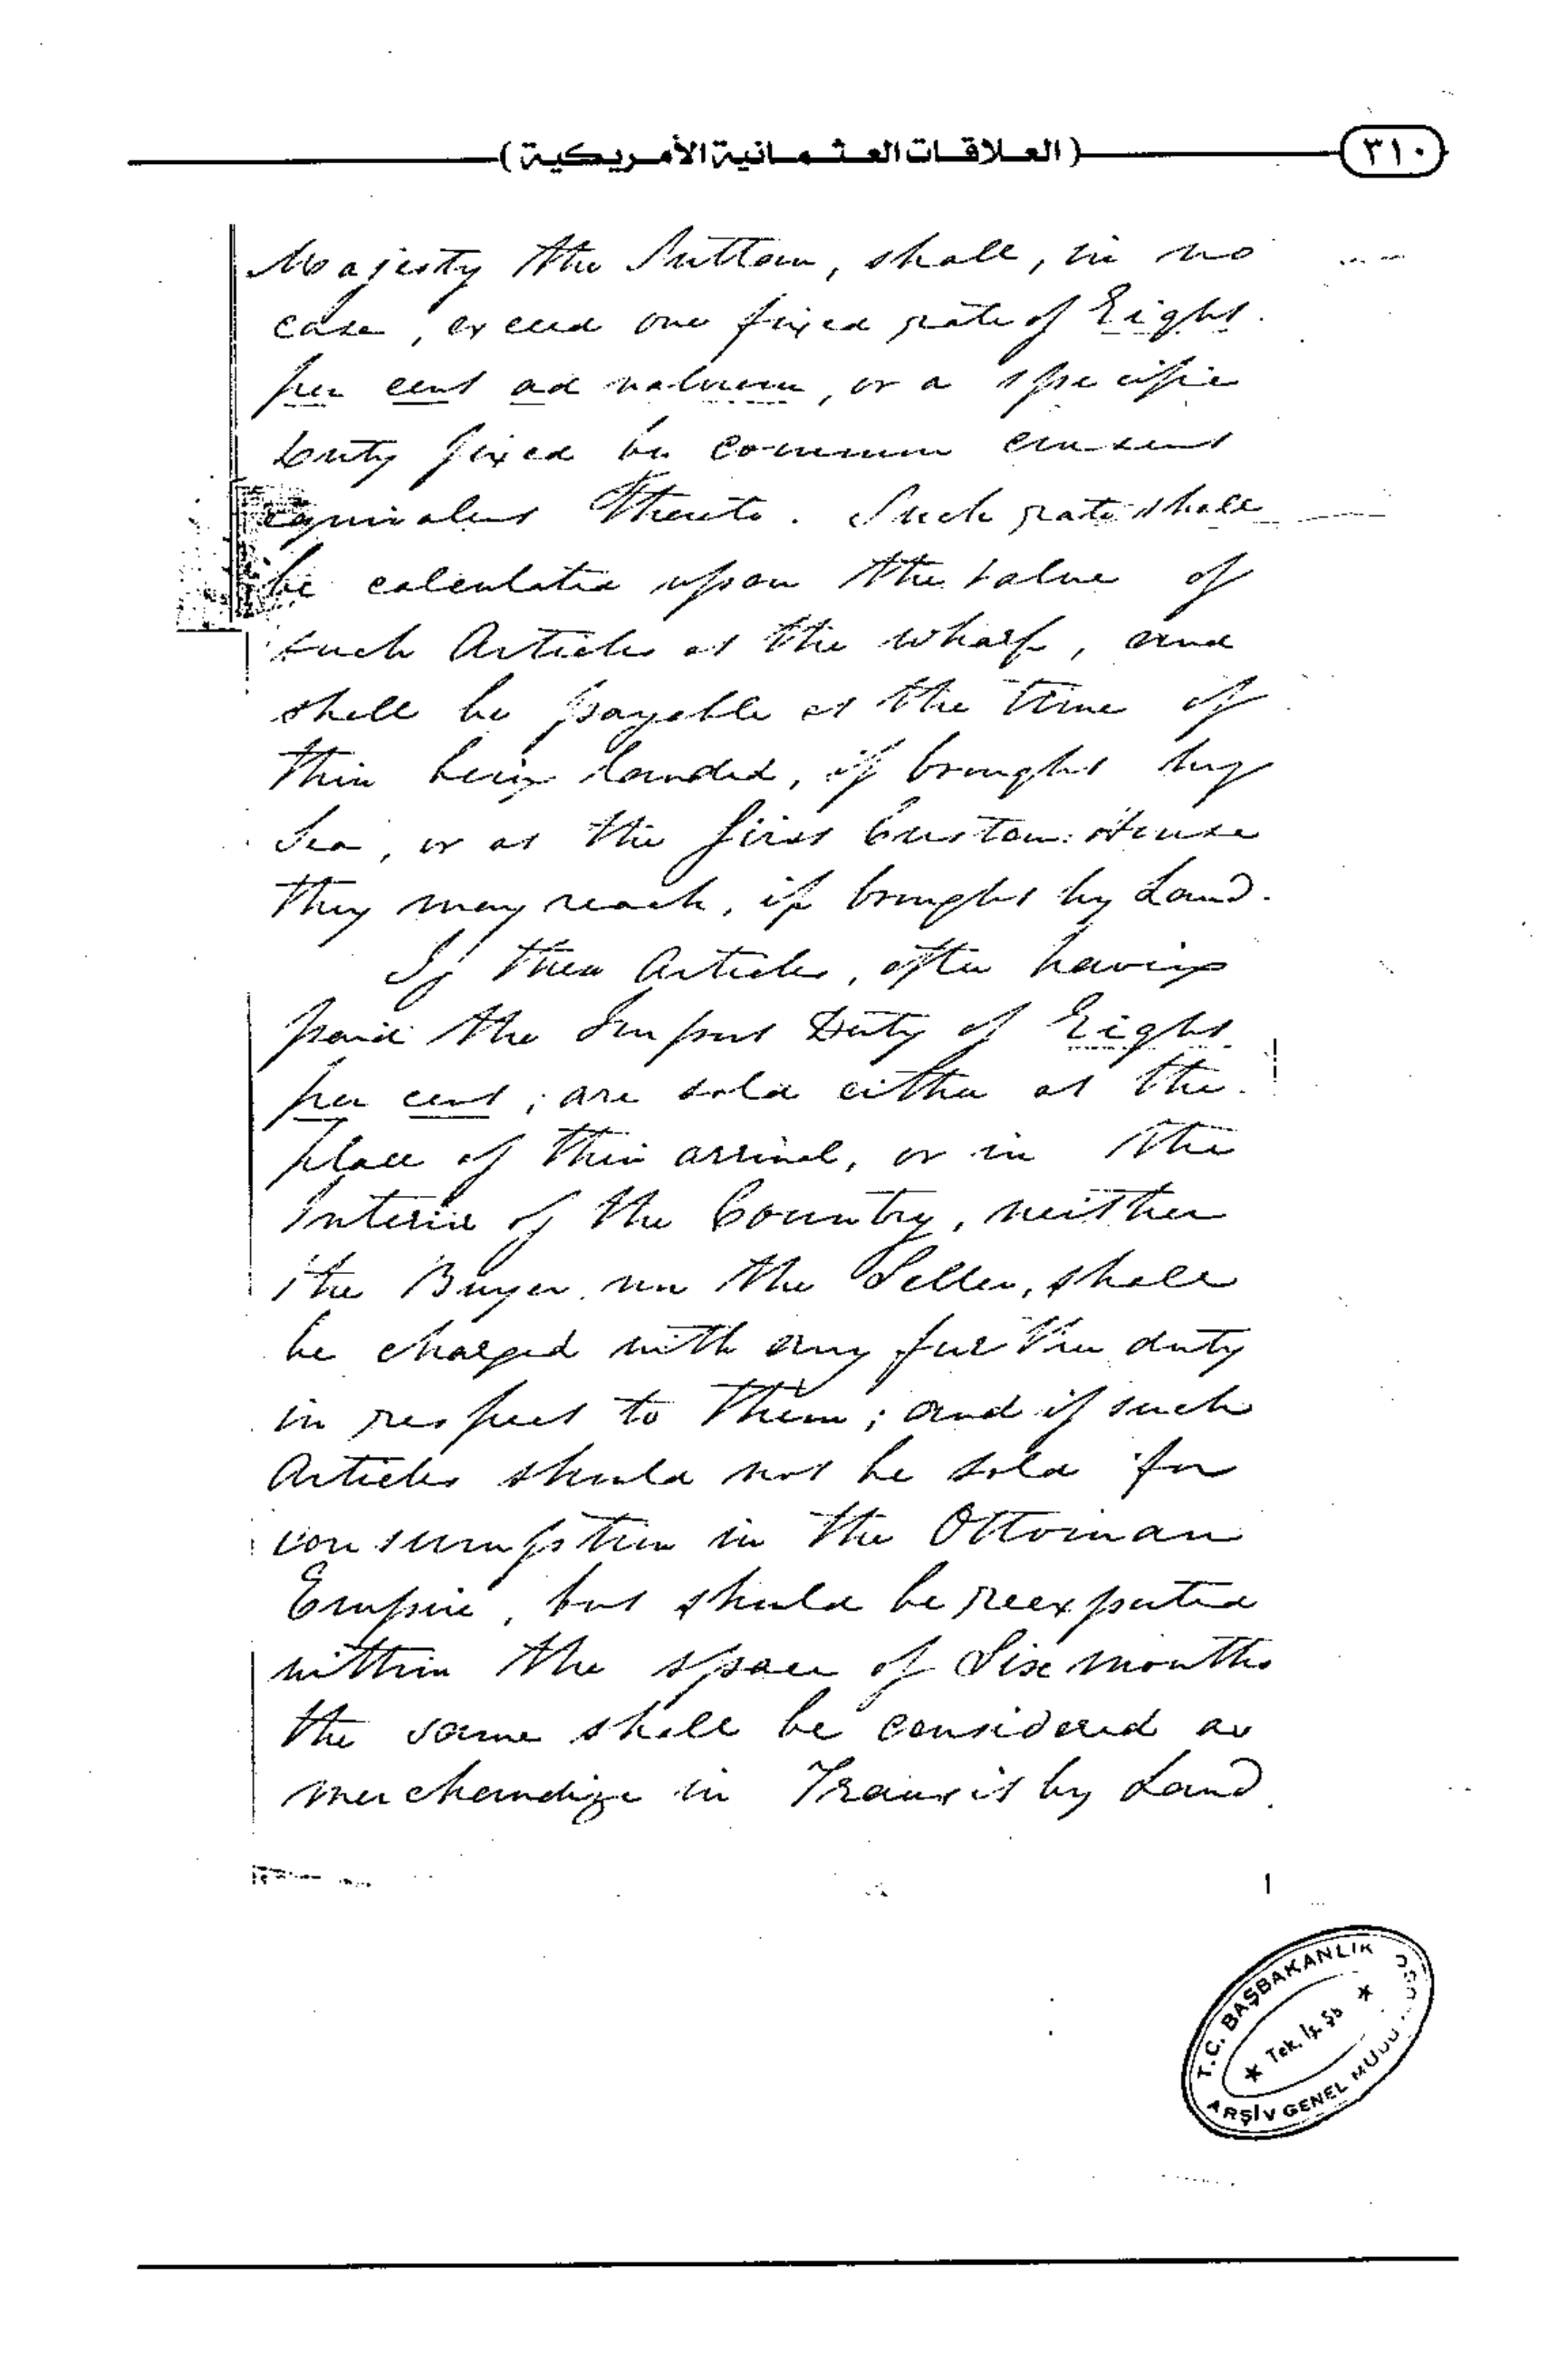 (العلاقات العثمانية الأمريكية)
٣١٠
Majesty the Sultan, shall, in no
case, exceed one fixed rate of Eight
per cent ad valorem, or a specific
Duty fixed by common consent
equivalent thereto. Such rate shall
be calculated upon the value of
such Articles at the wharf, and
shall be payable at the time of
their being landed, if brought by
Sea, or at the first Custom House
they may reach, if brought by Land.
If these Articles, after having
paid the Import Duty of Eight
per cent, are sold either at the
place of their arrival, or in the
Interior of the Country, neither
the Buyer nor the Seller, shall
be charged with any further duty
in respect to them; and if such
Articles should not be sold for
consumption in the Ottoman
Empire, but should be reexported
within the space of Six months
the same shall be considered as
merchandize in Transit by Land
T.C. BAŞBAKANLIK
Tek. İş. Şb
ARŞİV GENEL